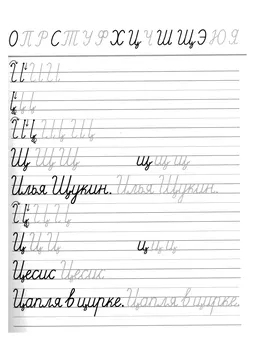 О П Р С Т У Ф Х Ц Ч Ш Щ Э Ю Я
Ц Ц Ц
Щ Щ Щ щ щ щ
Илья Щукин. Илья Щукин.
Ц Ц Ц
Ц Ц Ц ц ц ц
Цесис Цесис
Цапля в цирке. Цапля в цирке.